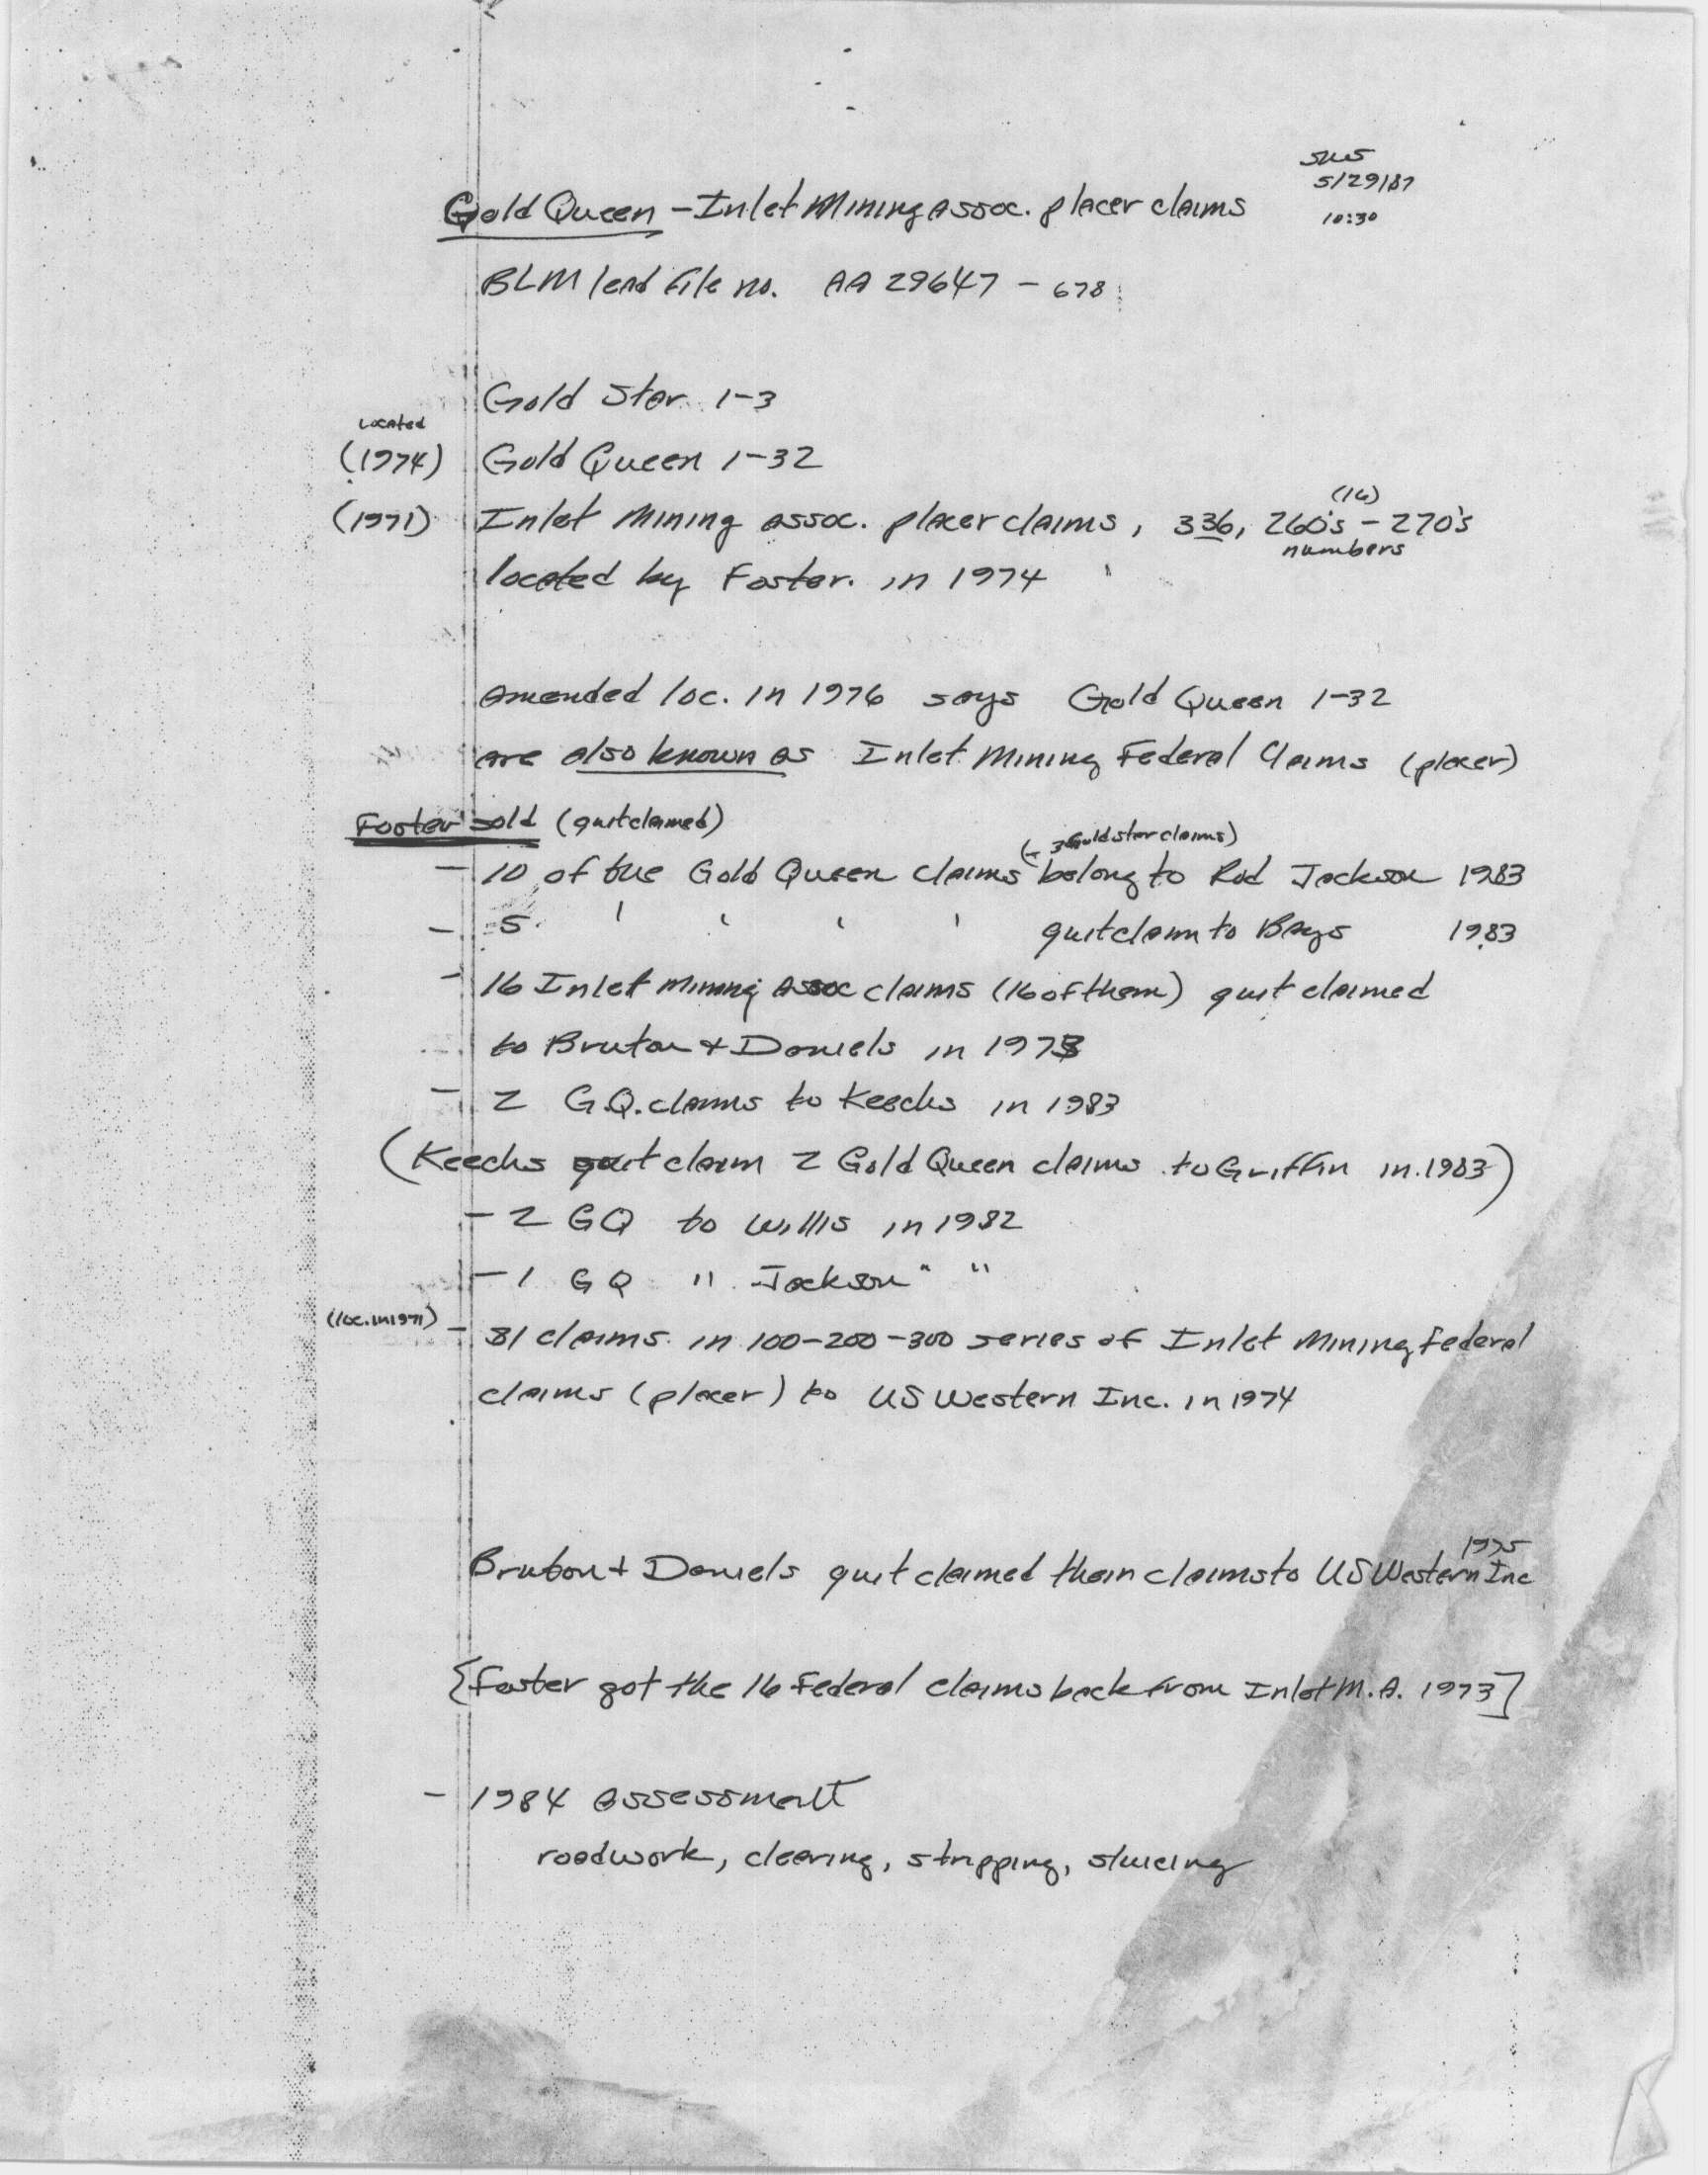 SWS
5/29/87
10:30
Gold Queen - Inlet Mining Assoc. placer claims
BLM lead file no. AA 29647 - 678
Gold Star 1-3
Located
(1974) Gold Queen 1-32
(16)
(1971) Inlet Mining Assoc. placer claims, 336, 260's - 270's
numbers
located by Foster. in 1974
Amended loc. in 1976 says Gold Queen 1-32
are also known as Inlet Mining Federal Claims (placer)
Foster sold (quitclaimed)
(+ 3 Gold star claims)
- 10 of the Gold Queen claims belong to Rod Jackson 1983
- 5 ' ' ' ' quitclaim to Bays 1983
- 16 Inlet Mining Assoc claims (16 of them) quit claimed
to Bruton + Daniels in 1973
- 2 G.Q. claims to Keechs in 1983
(Keechs quit claim 2 Gold Queen claims to Griffin in 1983)
- 2 GQ to Willis in 1982
- 1 GQ " Jackson " "
(loc. in 1971) - 81 claims in 100-200-300 series of Inlet Mining Federal
claims (placer) to US Western Inc. in 1974
1975
Bruton + Daniels quit claimed their claims to US Western Inc
{Foster got the 16 Federal claims back from Inlet M.A. 1973]
- 1984 assessment
roadwork, clearing, stripping, sluicing